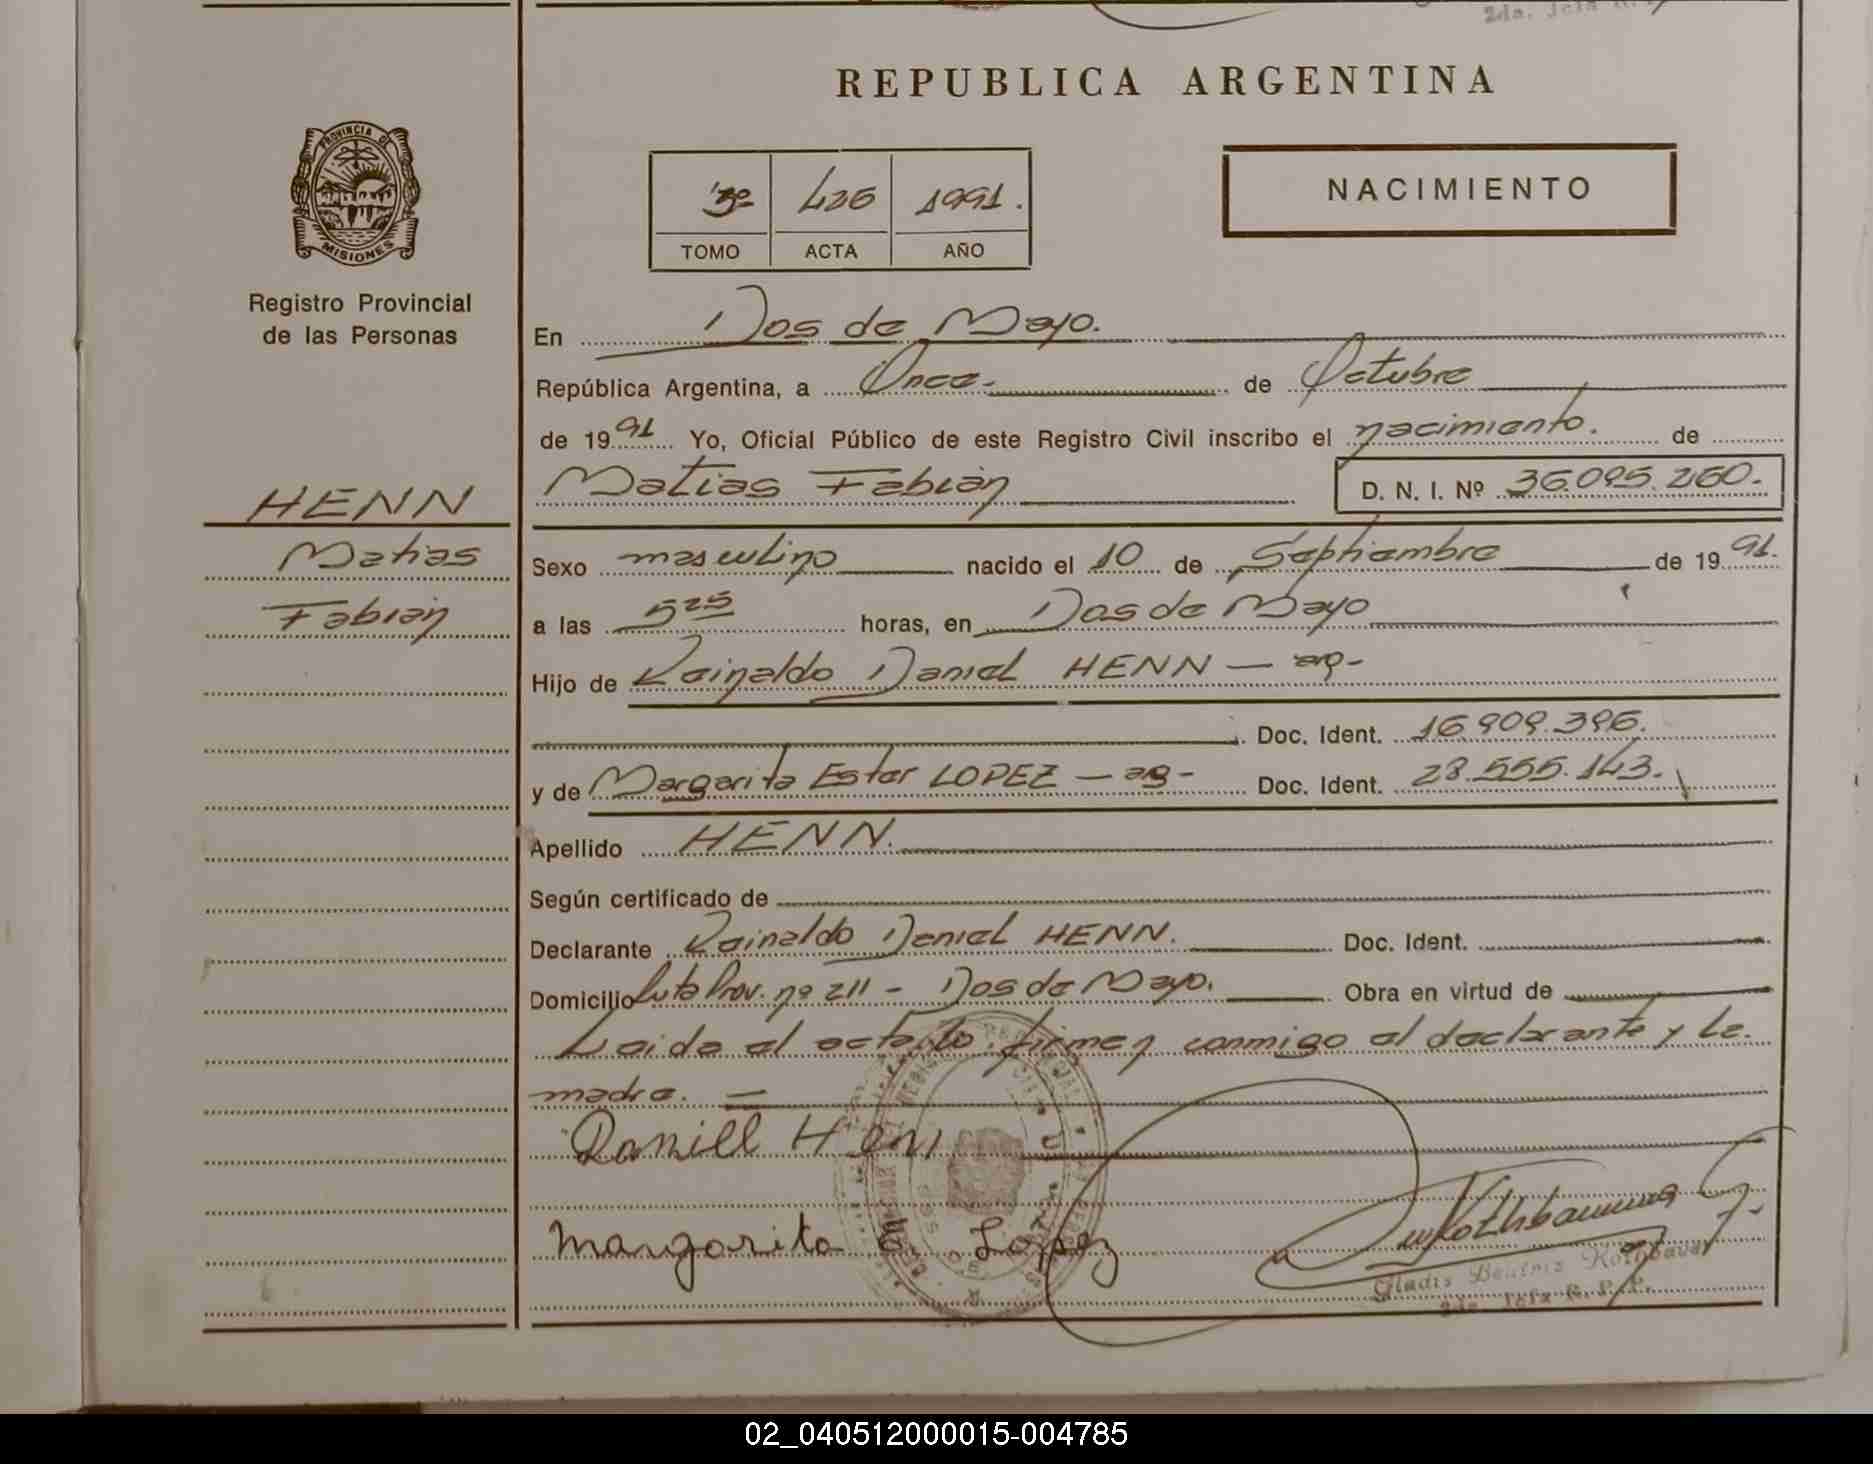 2da. Jefa
REPUBLICA ARGENTINA
PROVINCIA DE
MISIONES
Registro Provincial
de las Personas
3º 426 1991.
TOMO ACTA AÑO
NACIMIENTO
En Dos de Mayo.
República Argentina, a Once. de Octubre
de 1991 Yo, Oficial Público de este Registro Civil inscribo el nacimiento. de
HENN
Matias Fabián D. N. I. Nº 36.095.260.
Matias
Sexo masculino nacido el 10 de Septiembre de 1991.
Fabián
a las 525 horas, en Dos de Mayo
Hijo de Rainaldo Daniel HENN — ag-
Doc. Ident. 16.909.396.
y de Margarita Ester LOPEZ — ag- Doc. Ident. 28.555.143.
Apellido HENN.
Según certificado de
Declarante Rainaldo Daniel HENN. Doc. Ident.
Domicilio Ruta Prov. nº 211 - Dos de Mayo. Obra en virtud de
Leida el acta, lo firman conmigo el declarante y la
madre. —
Daniell Henn
Margarita E. Lopez
Gladis Beatriz
2da. Jefa R. P. P.
02_040512000015-004785